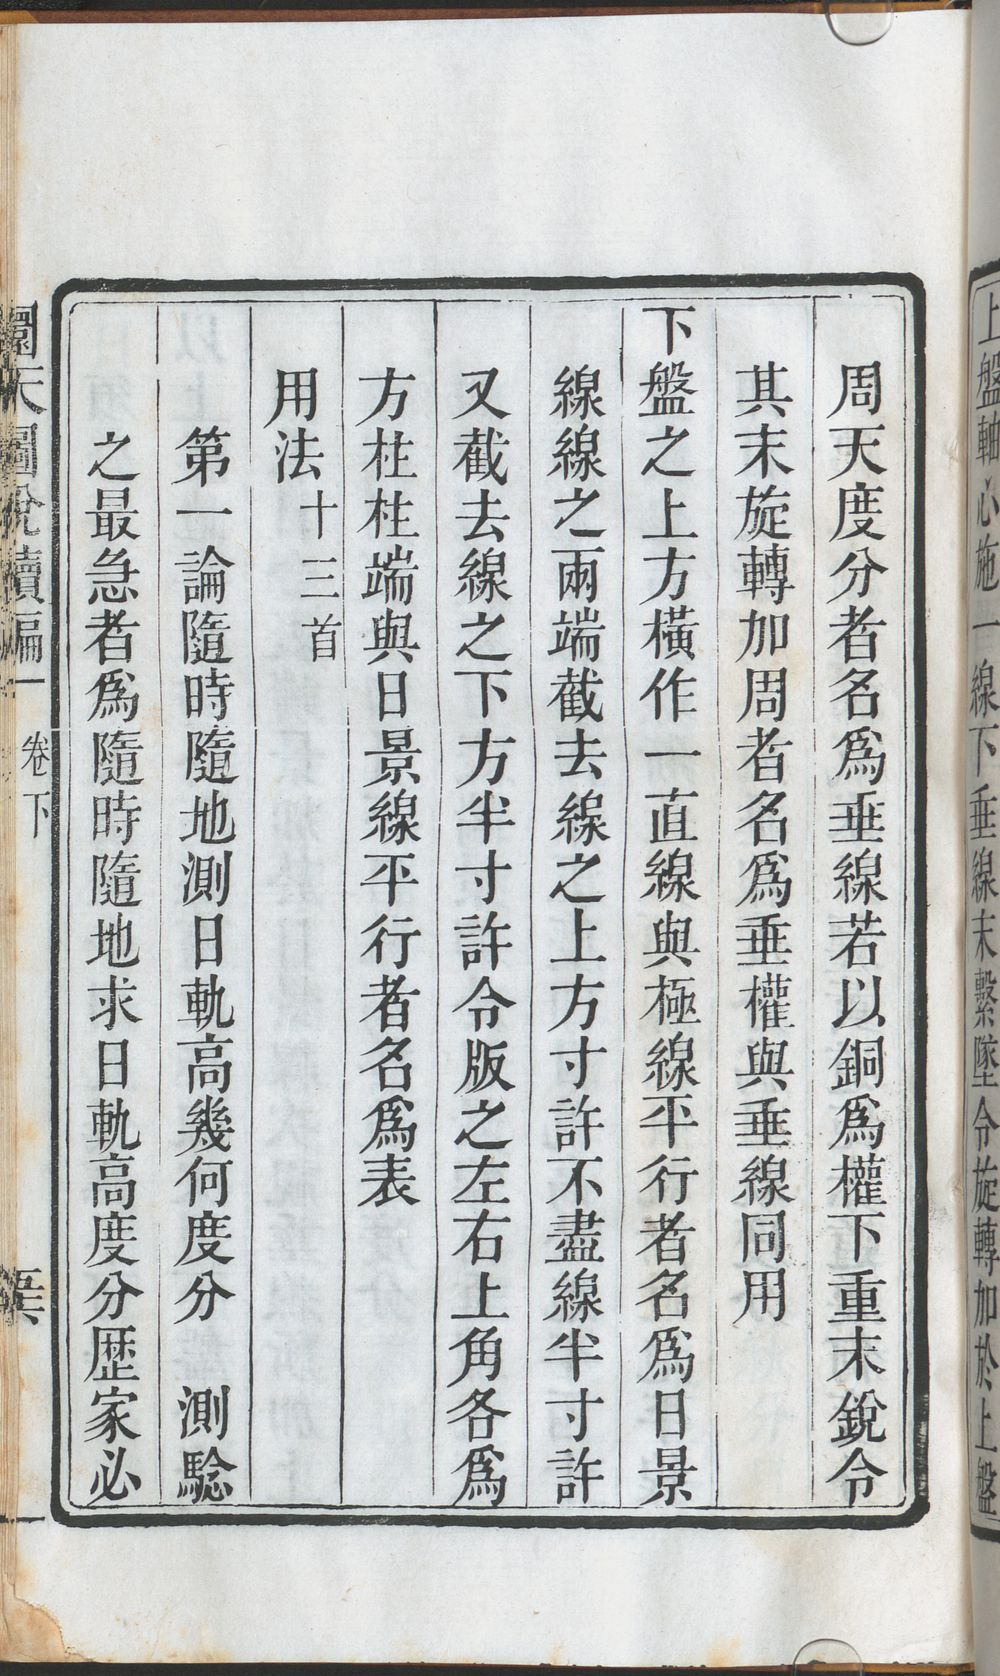 上盤軸心施一線下垂線末繫墜令旋轉加於上盤
周天度分者名爲垂線若以銅爲權下重末銳令
其末旋轉加周者名爲垂權與垂線同用
下盤之上方橫作一直線與極線平行者名爲日景
線線之兩端截去線之上方寸許不盡線半寸許
又截去線之下方半寸許令版之左右上角各爲
方柱柱端與日景線平行者名爲表
用法十三首
第一論隨時隨地測日軌高幾何度分　測驗
之最急者爲隨時隨地求日軌高度分歷家必
圜天圖說續編 卷下